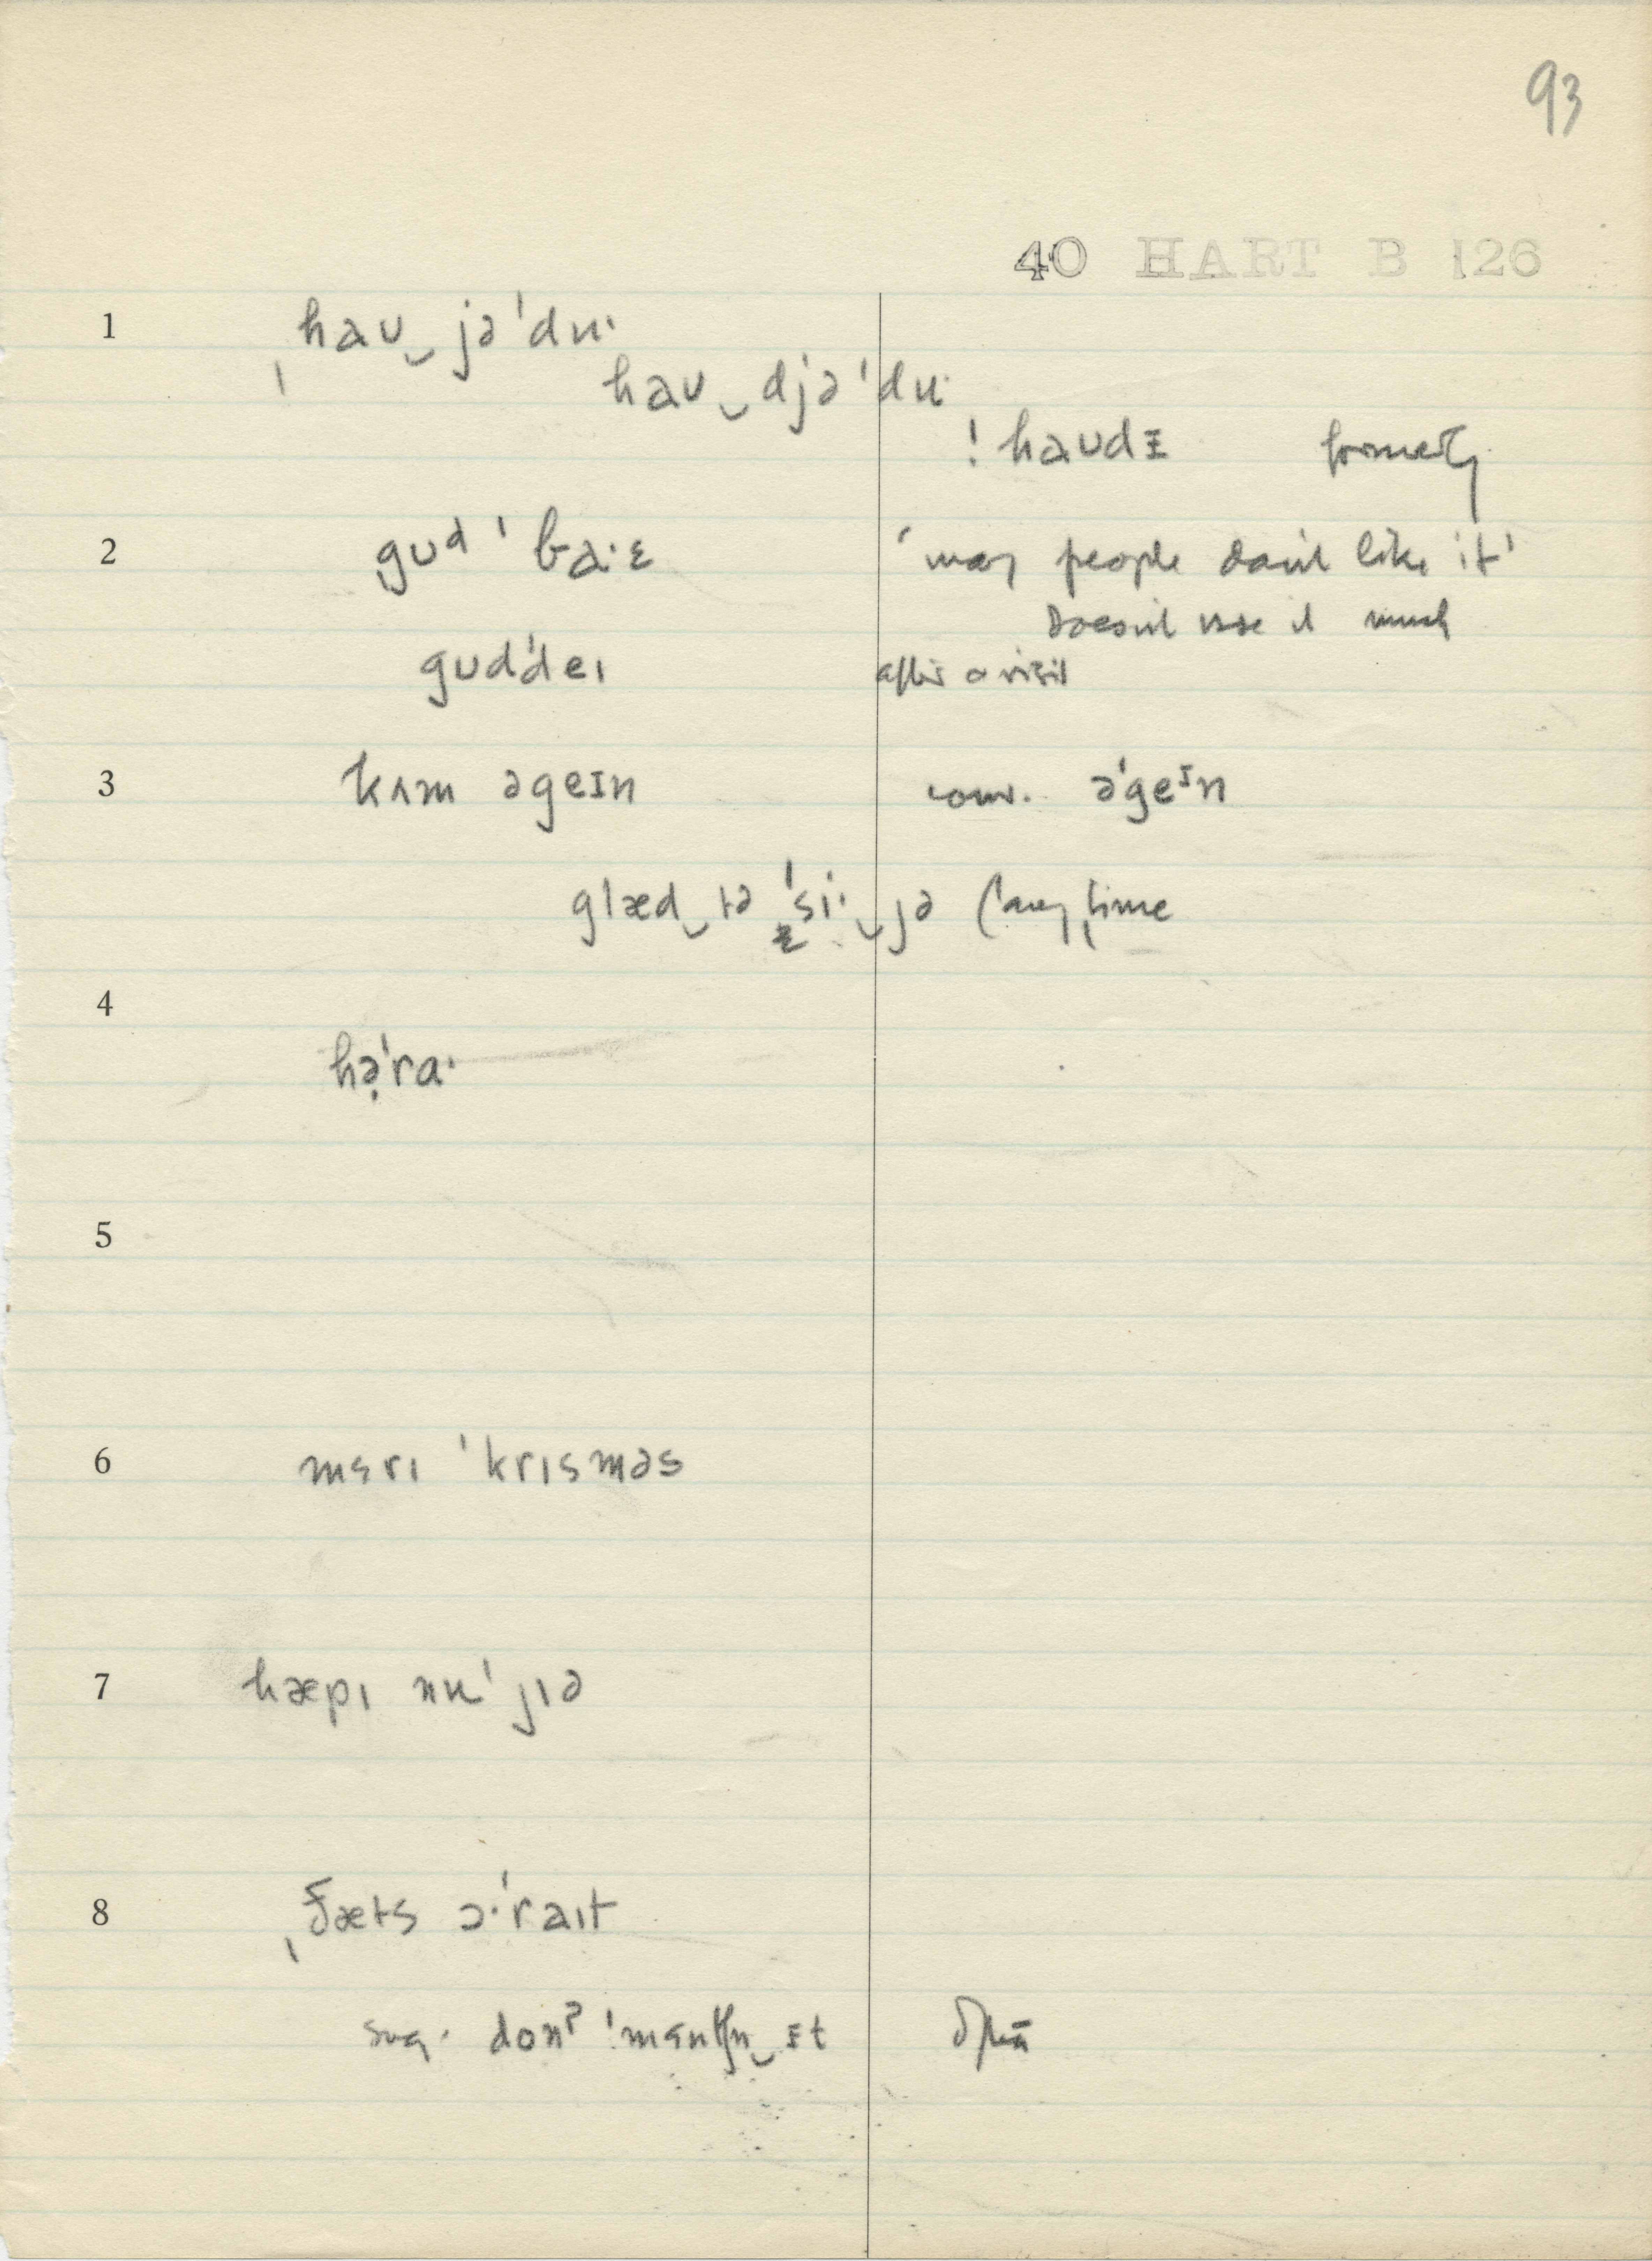 93
40 HART B 126
1 ˌhaʊ‿jəˈduˑ
haʊ‿djəˈduˑ
! haʊdɪ formerly
2 gʊᵈˈbaˑɛ 'many people don't like it'
Doesn't use it much
gʊdˈdeɪ after a visit
3 kʌm əgeɪn conv. əˈgeᴵn
glæd‿tə ˈsiˑ‿jə (any time
4
hə̣ˈraˑ
5
6 mɛrɪ ˈkrɪsməs
7 hæpɪ nuˈjɪə
8 ˌðæts ɔˑˈraɪt
sug. donˀ ˈmɛnʧn‿ɪt